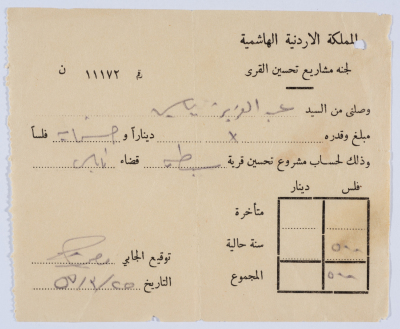 المملكة الاردنية الهاشمية
لجنه مشاريع تحسين القرى
نمرة ١١١٧٢ ن
وصلني من السيد عبد العزيز ياسين
مبلغ وقدره x ديناراً و خمسماية فلساً
وذلك لحساب مشروع تحسين قرية سبسطيه قضاء نابلس
فلس دينار
متأخرة
سنة حالية ٥٠٠
المجموع ٥٠٠
توقيع الجابي
التاريخ ٢٥/٣/٥٣